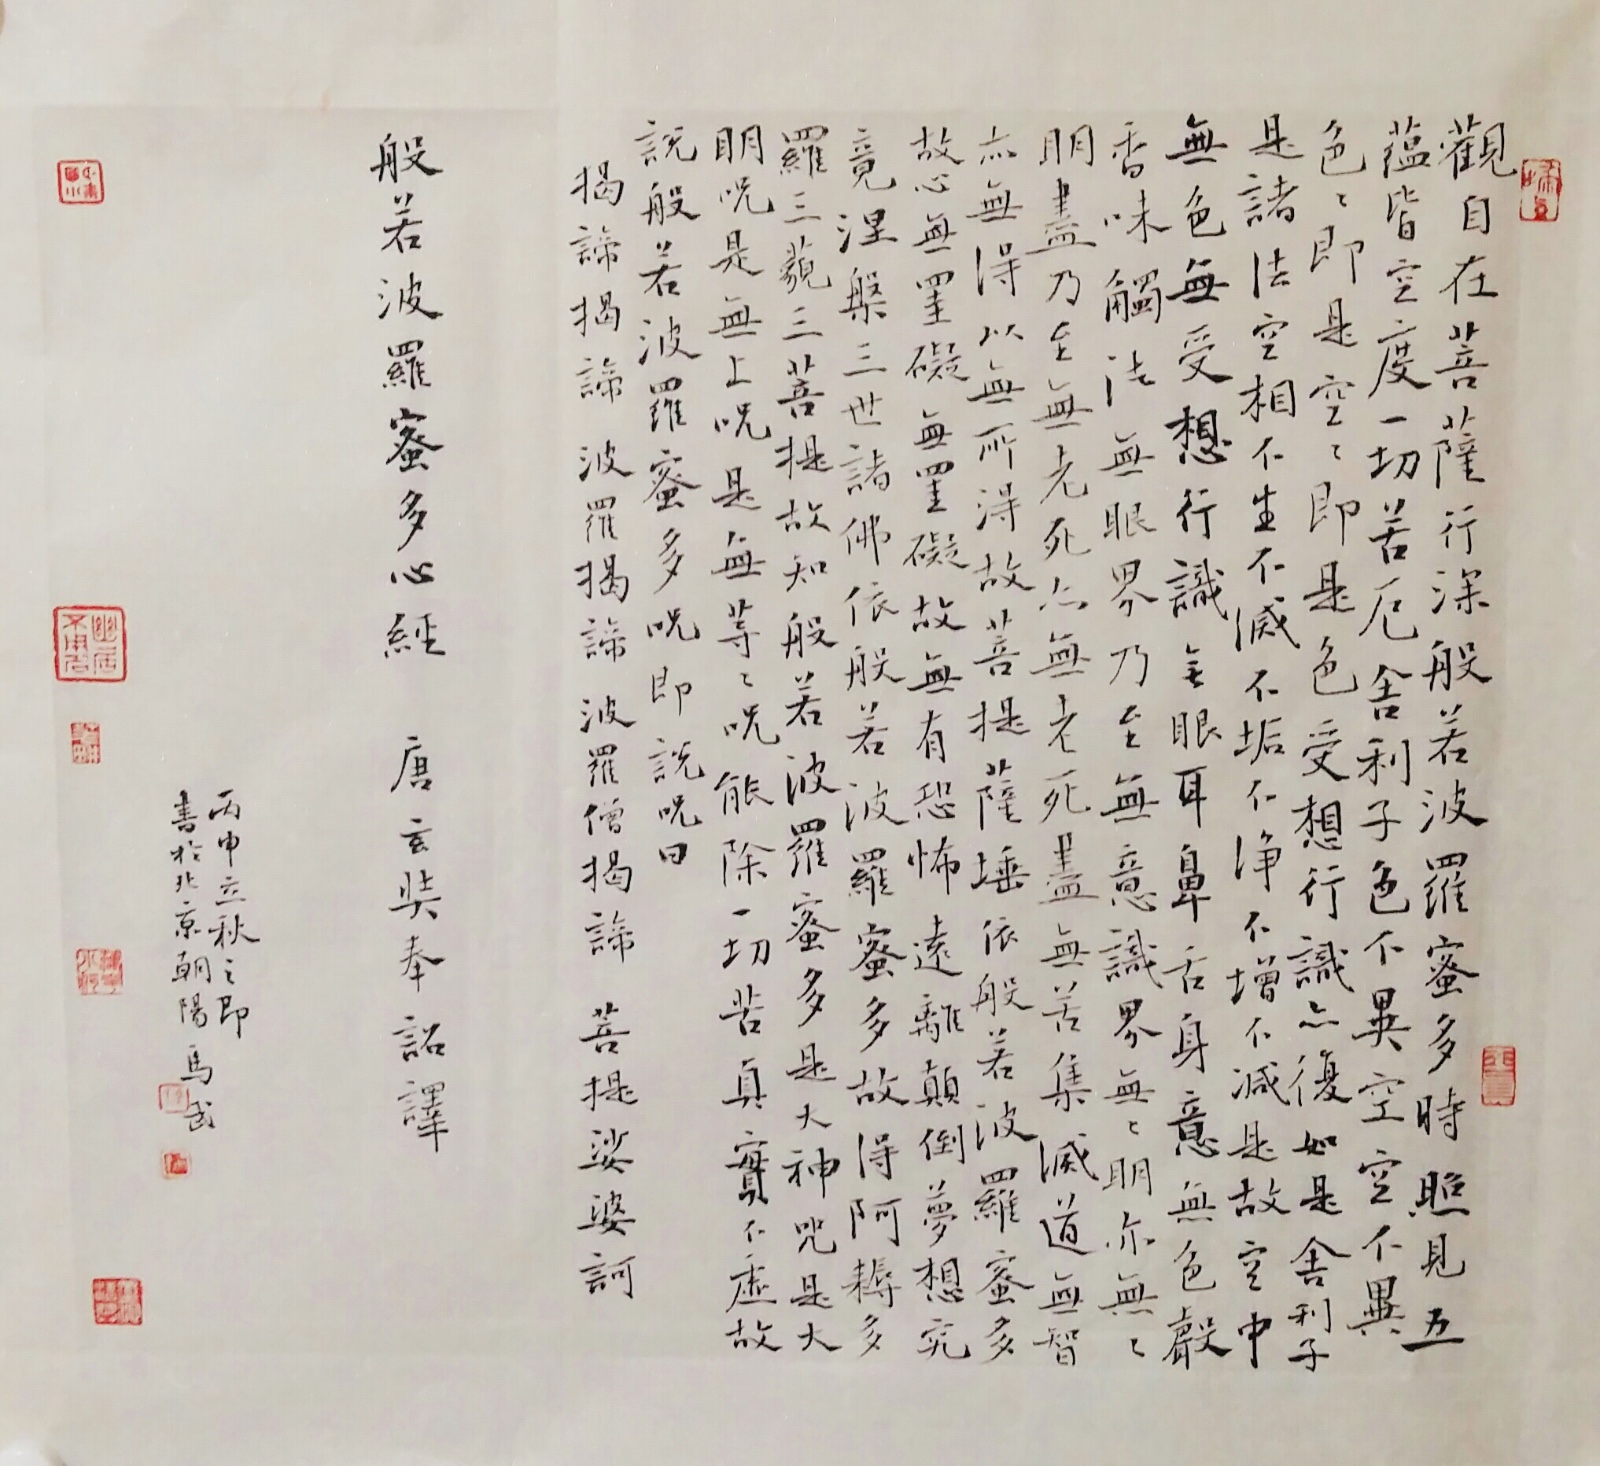 觀自在菩薩行深般若波羅蜜多時照見五
蘊皆空度一切苦厄舍利子色不異空空不異
色〻即是空〻即是色受想行識亦復如是舍利子
是諸法空相不生不滅不垢不净不增不减是故空中
無色無受想行識無眼耳鼻舌身意無色聲
香味觸法無眼界乃至無意識界無〻明亦無〻
明盡乃至無老死亦無老死盡無苦集滅道無智
亦無得以無所得故菩提薩埵依般若波羅蜜多
故心無罣礙無罣礙故無有恐怖遠離顛倒夢想究
竟涅槃三世諸佛依般若波羅蜜多故得阿耨多
羅三藐三菩提故知般若波羅蜜多是大神咒是大
明呪是無上呪是無等〻呪能除一切苦真實不虛故
說般若波羅蜜多呪即說呪曰
揭諦揭諦波羅揭諦波羅僧揭諦菩提娑婆訶
般若波羅蜜多心經 唐玄奘奉詔譯
丙申立秋之即
書於北京朝陽 馬武